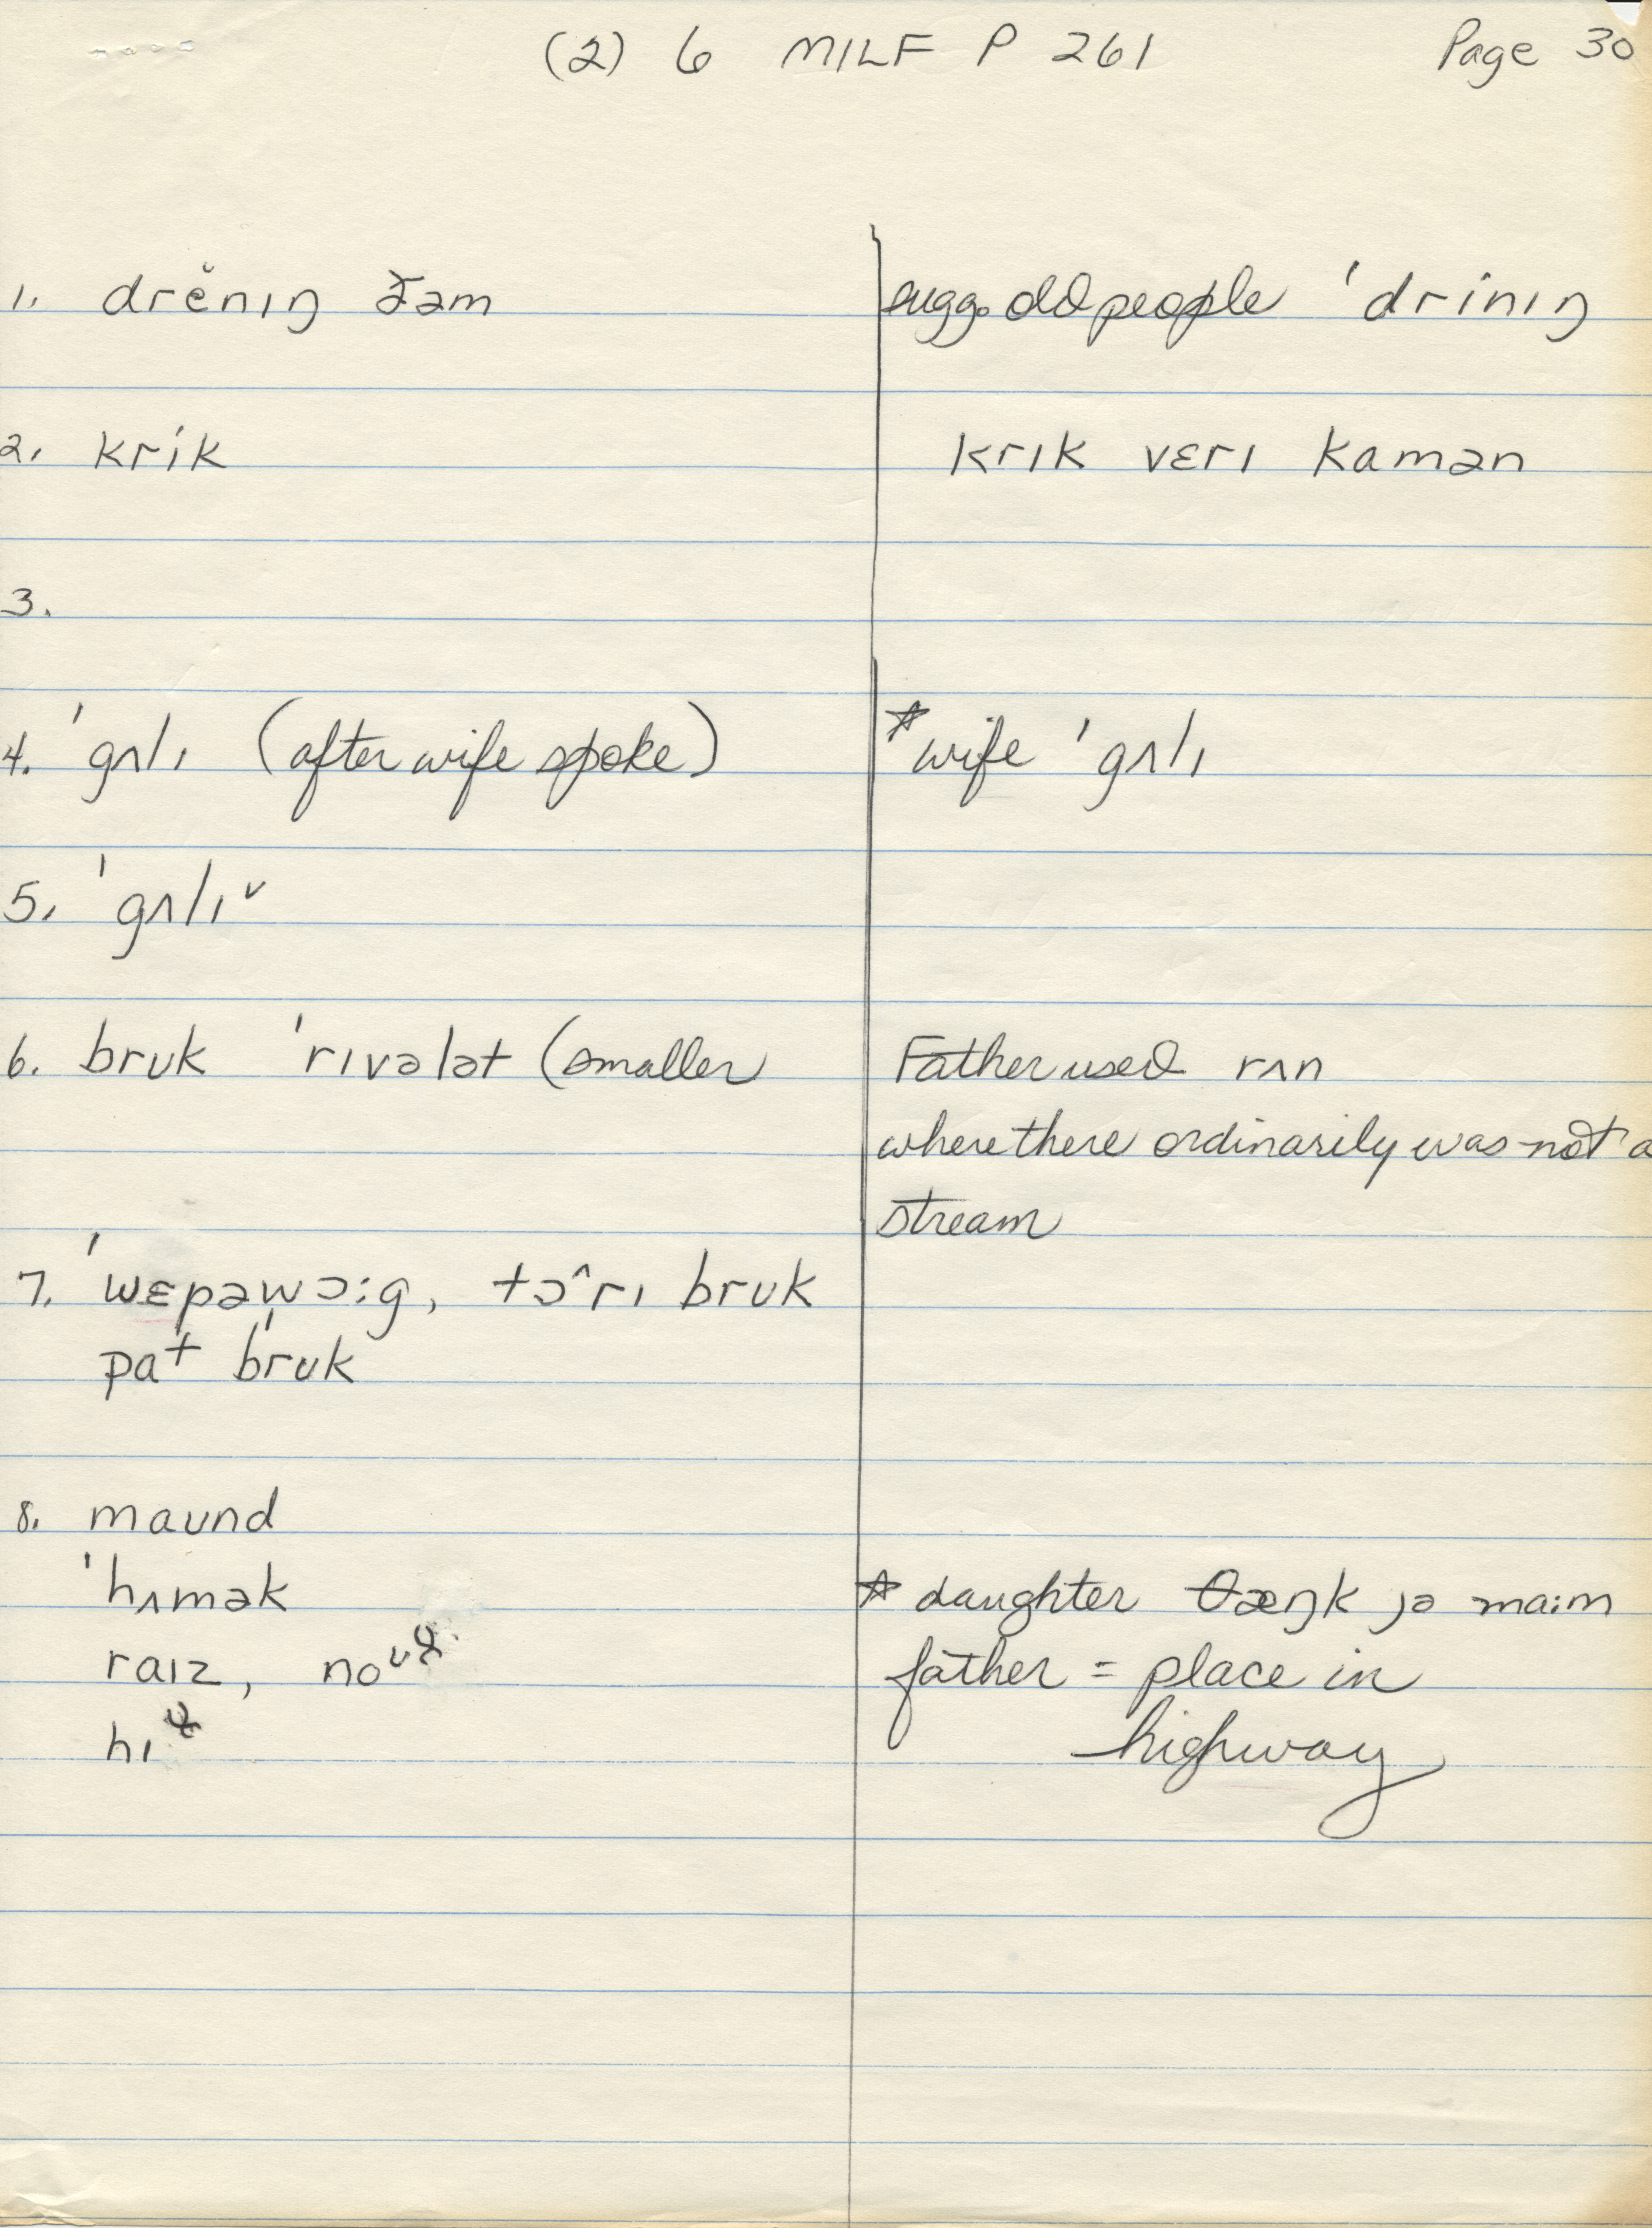 (2) 6 MILF P 261 Page 30
1. drĕnɪŋ ðəm
sugg. old people 'drinɪŋ
2. krik
krɪk vɛrɪ kamən
3.
4. 'gʌlɪ (after wife spoke)
☆ wife 'gʌlɪ
5. 'gʌlɪ˅
6. brʊk 'rɪvələt (smaller
Father used rʌn
where there ordinarily was not a
stream
7. 'wɛpəwɔ:g, tɔ^rɪ brʊk
pat brʊk
8. maʊnd
'hʌmək
raɪz, noʊ
hɪ
☆ daughter θæŋk jə ma:m
father = place in
highway